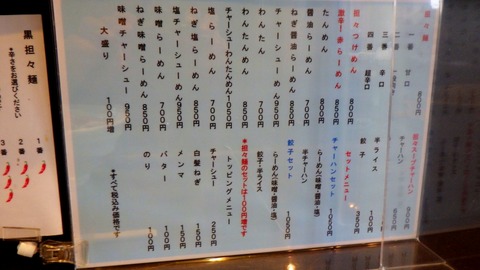 担々麺
一番 甘口 800円
二番
三番 辛口
四番 超辛口
担々つけめん 800円
激辛！赤らーめん 850円
たんめん 850円
醤油らーめん 700円
ねぎ醤油らーめん 850円
チャーシューめん 950円
わんたん 700円
わんたんめん 850円
チャーシューわんたんめん 1050円
塩らーめん 700円
ねぎ塩らーめん 850円
塩チャーシューめん 950円
味噌らーめん 700円
ねぎ味噌らーめん 850円
味噌チャーシュー 950円
大盛り 100円増
担々スープチャーハン 900円
チャーハン 650円
半ライス 100円
餃子 350円
セットメニュー
チャーハンセット 1050円
らーめん(味噌・醤油・塩)
半チャーハン
餃子セット 1050円
らーめん(味噌・醤油・塩)
餃子・半ライス
＊担々麺のセットは100円増です
トッピングメニュー
チャーシュー 250円
白髪ねぎ 150円
メンマ 150円
バター 100円
のり 100円
＊すべて税込み価格です
黒担々麺
＊辛さをお選びください
1番
2番
3番